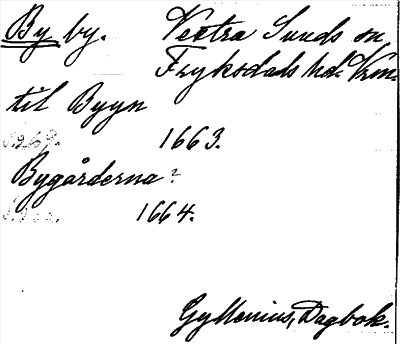 By by. Vestra Sunds sn
Fryksdals hd. Vrm.
til Byyn
1663.
Bygårderna?
1664.
Gyllenius, Dagbok.